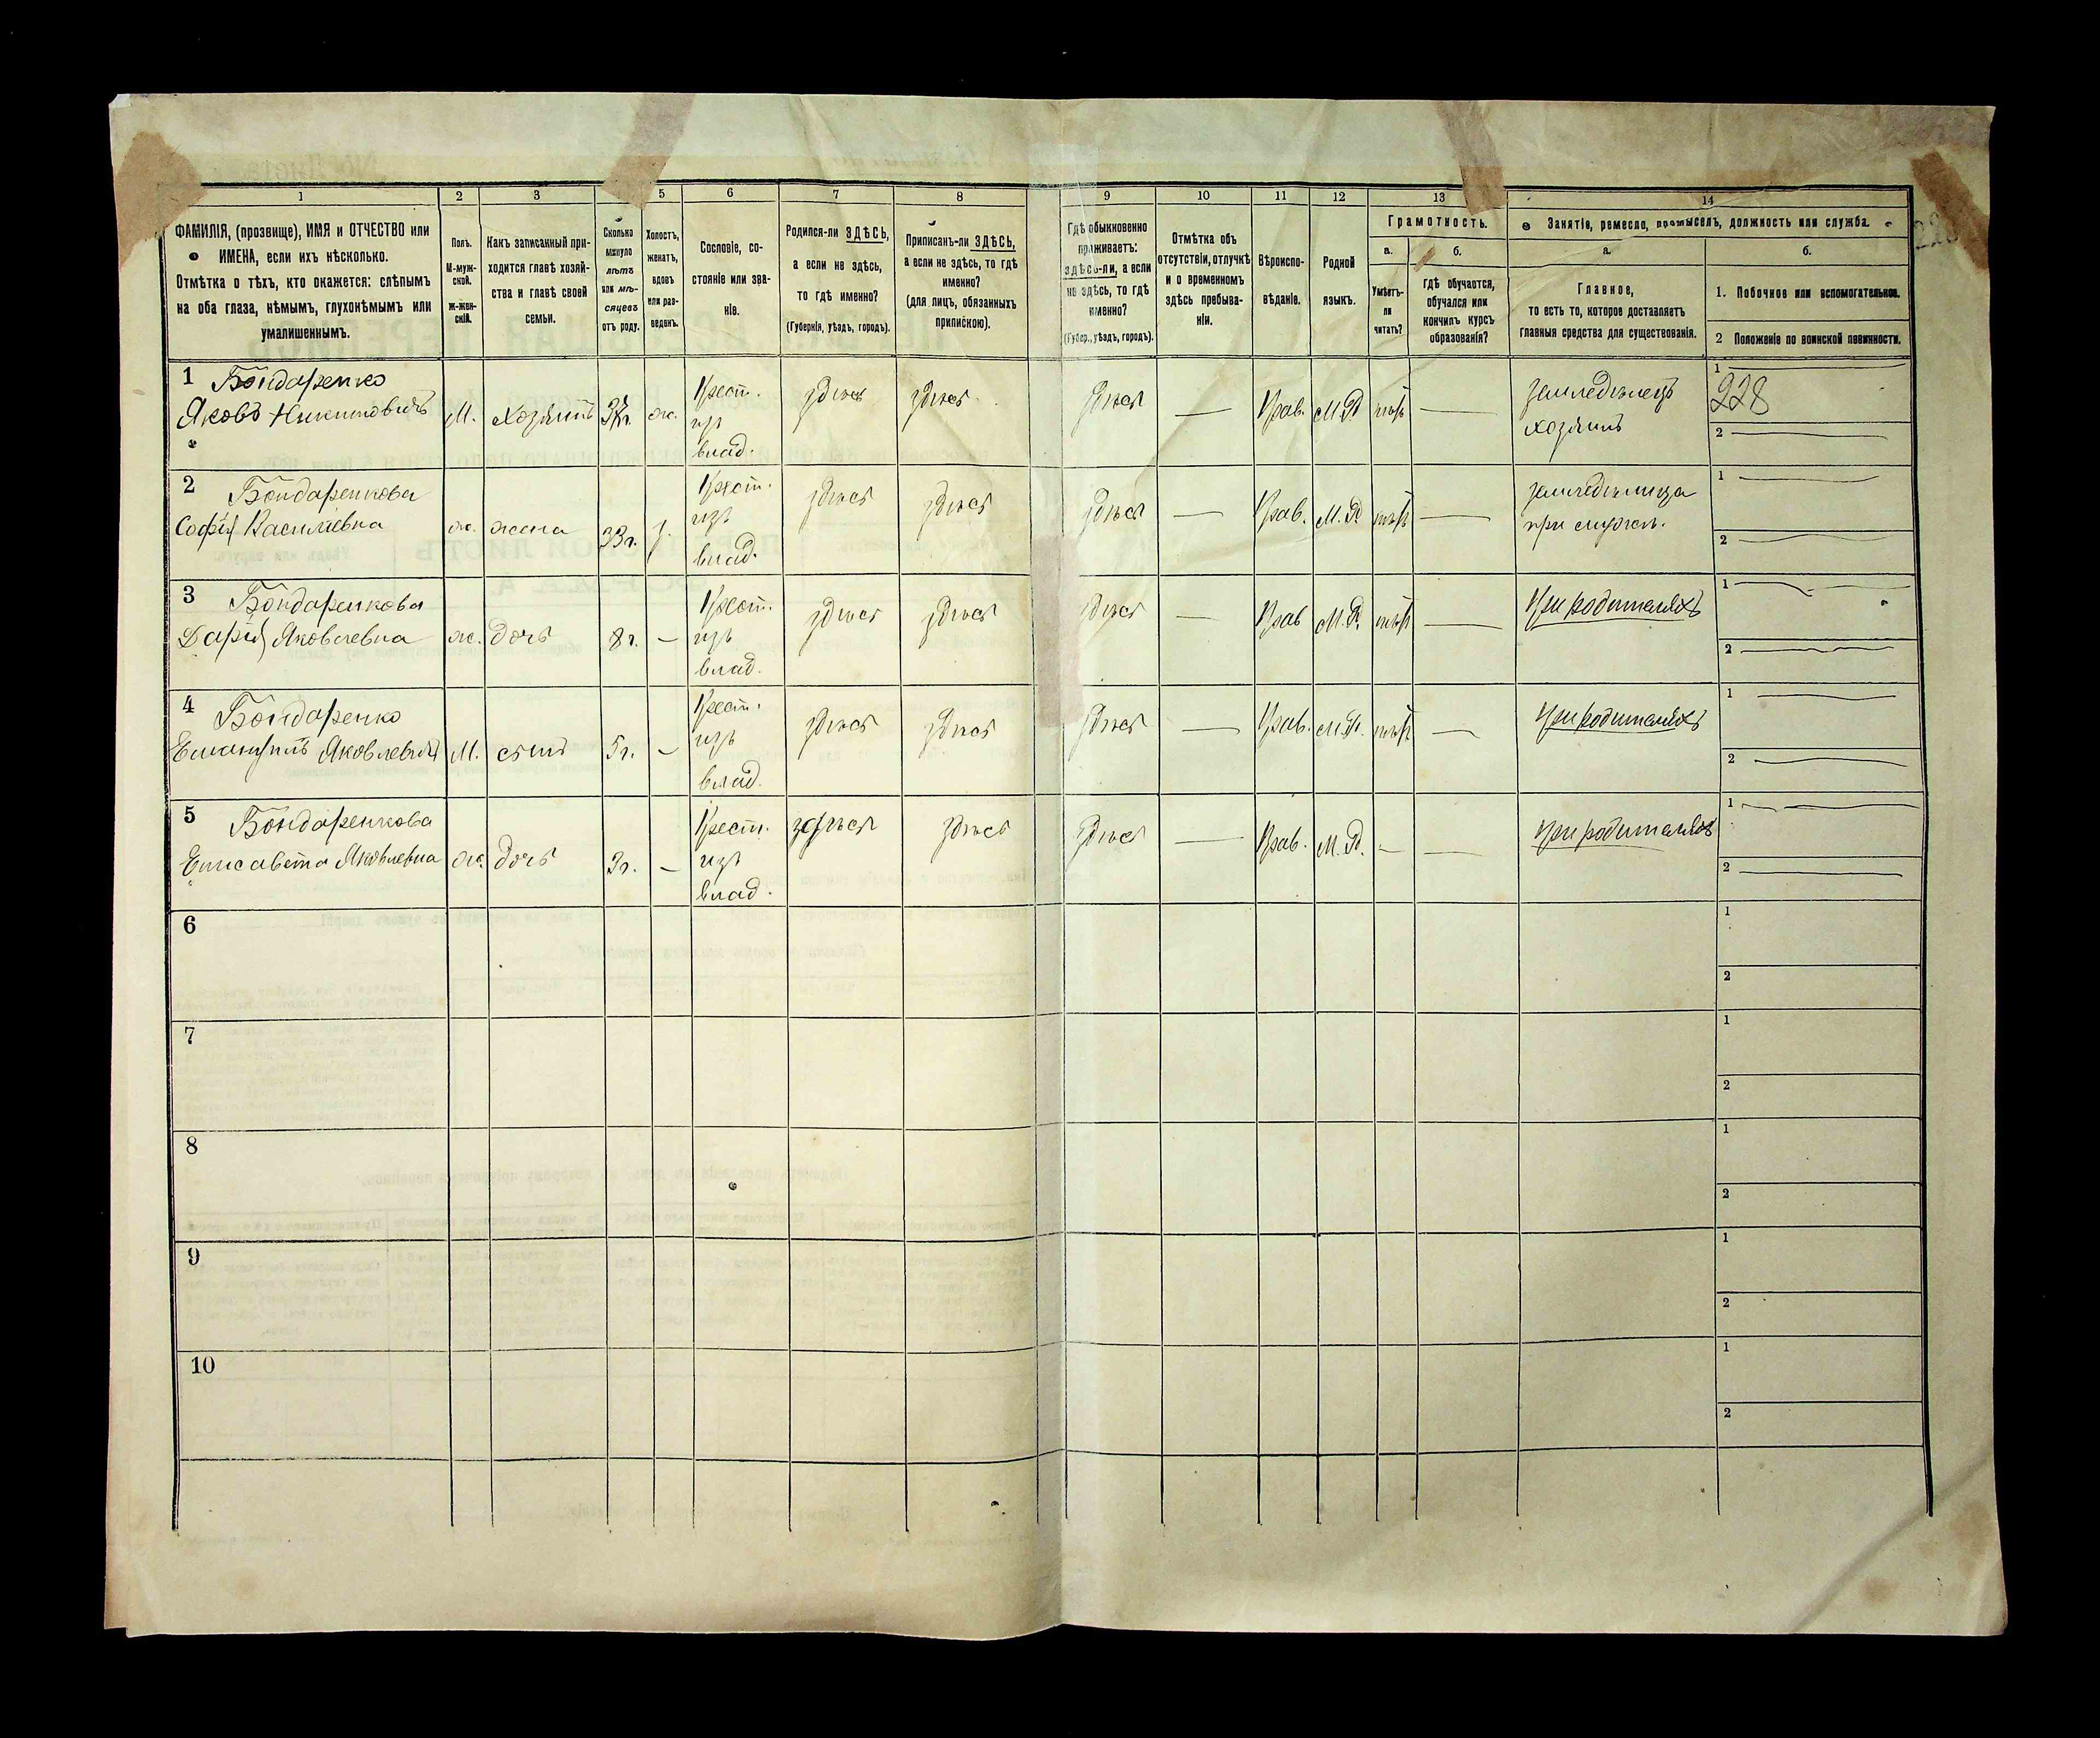 1 2 3 5 6 7 8 9 10 11 12 13 14
ФАМИЛІЯ, (прозвище), ИМЯ и ОТЧЕСТВО или
ИМЕНА, если ихъ нѣсколько.
Отмѣтка о тѣхъ, кто окажется: слѣпымъ
на оба глаза, нѣмымъ, глухонѣмымъ или
умалишеннымъ.
Полъ.
М-муж-
ской.
Ж-жен-
скій.
Какъ записанный при-
ходится главѣ хозяй-
ства и главѣ своей
семьи.
Сколько
минуло
лѣтъ
или мѣ-
сяцевъ
отъ роду.
Холостъ,
женатъ,
вдовъ
или раз-
веденъ.
Сословіе, со-
стояніе или зва-
ніе.
Родился-ли ЗДѢСЬ,
а если не здѣсь,
то гдѣ именно?
(Губернія, уѣздъ, городъ).
Приписанъ-ли ЗДѢСЬ,
а если не здѣсь, то гдѣ
именно?
(для лицъ, обязанныхъ
припискою).
Гдѣ обыкновенно
проживаетъ:
здѣсь-ли, а если
не здѣсь, то гдѣ
именно?
(Губер., уѣздъ, городъ).
Отмѣтка объ
отсутствіи, отлучкѣ
и о временномъ
здѣсь пребыва-
ніи.
Вѣроиспо-
вѣданіе.
Родной
языкъ.
Грамотность.
а.
Умѣетъ-
ли
читать?
б.
Гдѣ обучается,
обучался или
кончилъ курсъ
образованія?
Занятіе, ремесло, промыселъ, должность или служба.
а.
Главное,
то есть то, которое доставляетъ
главныя средства для существованія.
б.
1. Побочное или вспомогательное.
2 Положеніе по воинской повинности.
1 Бондаренко
Яковъ Никитовичъ М. Хозяинъ ж.
Крест.
изъ
влад.
здѣсь здѣсь здѣсь — Прав. М. Р. нѣтъ —
земледѣлецъ
хозяинъ
1 228
2
2 Бондаренкова
Софія Василіевна ж. жена 33 г. з.
Крест.
изъ
влад.
здѣсь здѣсь здѣсь — Прав. М. Р. нѣтъ —
земледѣлица
при
1
2
3 Бондаренкова
Дарія Яковлевна ж. дочь 8 г. —
Крест.
изъ
влад.
здѣсь здѣсь здѣсь — Прав М. Р. нѣтъ — при родителяхъ
1
2
4 Бондаренко
Емануилъ Яковлевичъ М. сынъ 5 г. —
Крест.
изъ
влад.
здѣсь здѣсь здѣсь — Прав. М. Р. нѣтъ — при родителяхъ
1
2
5 Бондаренкова
Елисавета Яковлевна ж. дочь 3 г. —
Крест.
изъ
влад.
здѣсь здѣсь здѣсь — Прав. М. Р. — — при родителяхъ
1
2
6 1
2
7 1
2
8 1
2
9 1
2
10 1
2